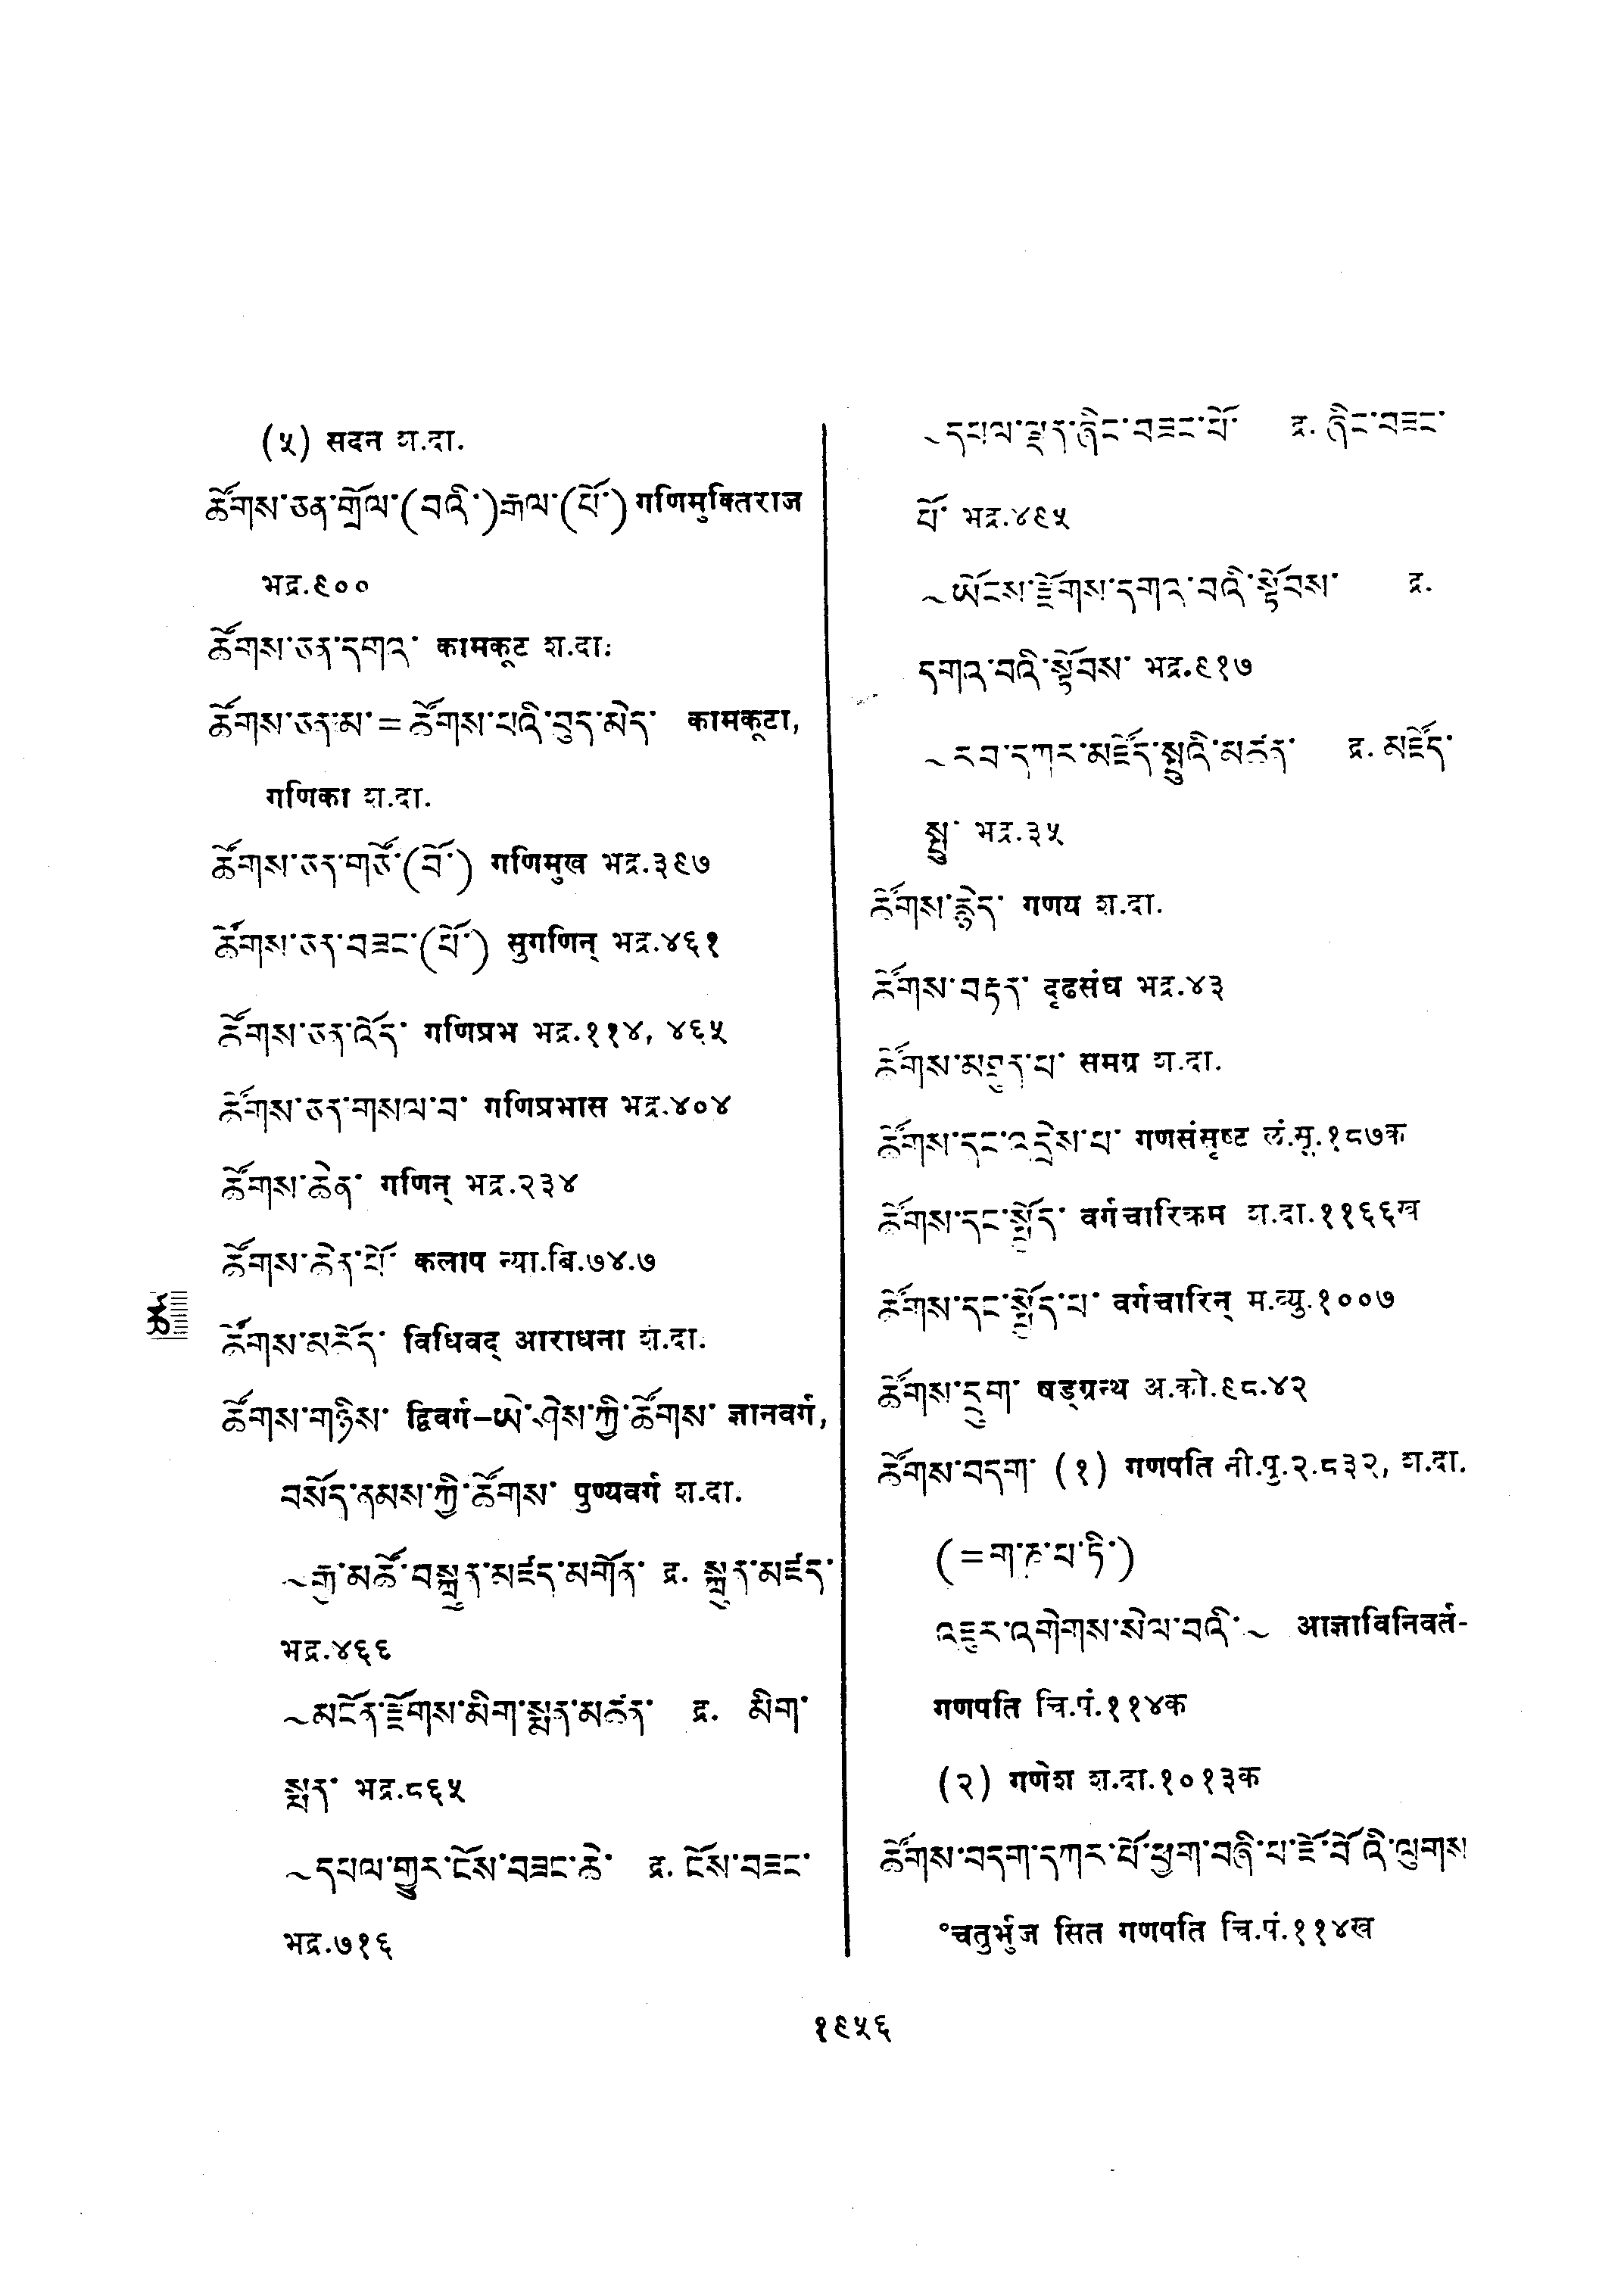 (५) सदन श.दा.
ཚོགས་ཅན་གྲོལ་(བའི་)རྒྱལ་(པོ་) गणिमुक्तिराज
भद्र.९००
ཚོགས་ཅན་དགའ་ कामकूट श.दा.
ཚོགས་ཅན་མ་ = ཚོགས་པའི་བུད་མེད་ कामकूटा,
गणिका श.दा.
ཚོགས་ཅན་གཙོ་(བོ་) गणिमुख भद्र.३९७
ཚོགས་ཅན་བཟང་(པོ་) सुगणिन् भद्र.४६१
ཚོགས་ཅན་འོད་ गणिप्रभ भद्र.११४, ४६५
ཚོགས་ཅན་གསལ་བ་ गणिप्रभास भद्र.४०४
ཚོགས་ཆེན་ गणिन् भद्र.२३४
ཚོགས་ཆེན་པོ་ कलाप न्या.बि.७४.७
ཚོ
ཚོགས་མཆོད་ विधिवद् आराधना श.दा.
ཚོགས་གཉིས་ द्विवर्ग–ཡེ་ཤེས་ཀྱི་ཚོགས་ ज्ञानवर्ग,
བསོད་ནམས་ཀྱི་ཚོགས་ पुण्यवर्ग श.दा.
~རྒྱ་མཚོ་བསྐྲུན་མཛད་མགོན་ द्र. སྐྲུན་མཛད་
भद्र.४६६
~མངོན་རྫོགས་མིག་སྨན་མཚན་ द्र. མིག་
སྨན་ भद्र.८६५
~དཔལ་གྱུར་ངོས་བཟང་ཆེ་ द्र. ངོས་བཟང་
भद्र.७१६
~དཔལ་ལྡན་ཞིང་བཟང་པོ་ द्र. ཞིང་བཟང་
པོ་ भद्र.४९५
~ཡོངས་རྫོགས་དགའ་བའི་སྟོབས་ द्र.
དགའ་བའི་སྟོབས་ भद्र.९१७
~རབ་དཀར་མཛོད་སྤུའི་མཚན་ द्र. མཛོད་
སྤུ་ भद्र.३५
ཚོགས་རྙེད་ गणय श.दा.
ཚོགས་བརྟན་ दृढसंघ भद्र.४३
ཚོགས་མཐུན་པ་ समग्र श.दा.
ཚོགས་དང་འདྲེས་པ་ गणसंसृष्ट लं.मू.१८७क
ཚོགས་དང་སྤྱོད་ वर्गचारिक्रम श.दा.११६६ख
ཚོགས་དང་སྤྱོད་པ་ वर्गचारिन् म.व्यु.१००७
ཚོགས་དྲུག་ षड्ग्रन्थ अ.को.९८.४२
ཚོགས་བདག་ (१) गणपति नी.पु.२.८३२, श.दा.
(=ག་ཎ་པ་ཏི་)
འཇུར་འགེགས་སེལ་བའི་~ आज्ञाविनिवर्त-
गणपति चि.पं.११४क
(२) गणेश श.दा.१०१३क
ཚོགས་བདག་དཀར་པོ་ཕྱག་བཞི་པ་ཇོ་བོའི་ལུགས
°चतुर्भुज सित गणपति चि.पं.११४ख
१९५६